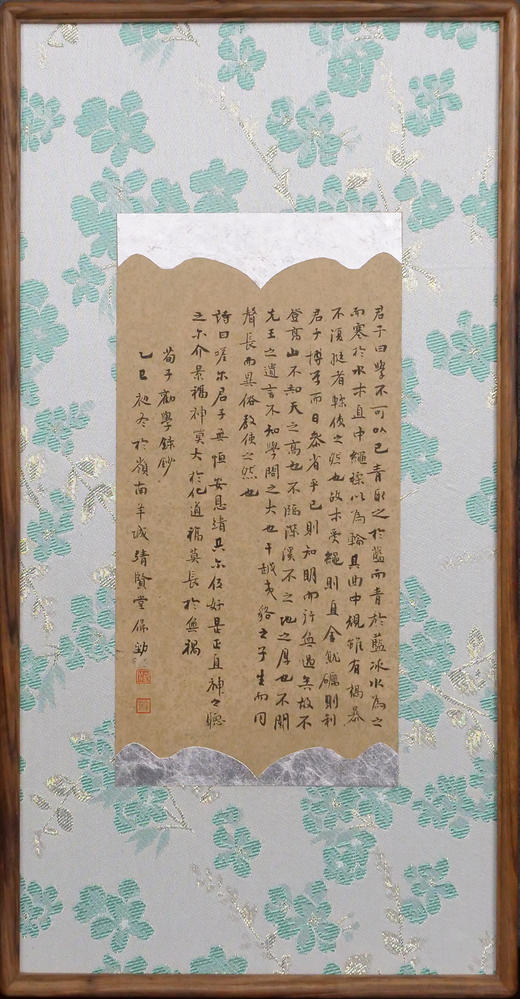 君子曰學不可以已青取之於藍而青於藍冰水為之
而寒於水木直中繩輮以為輪其曲中規雖有槁暴
不復挺者輮使之然也故木受繩則直金就礪則利
君子博學而日參省乎己則知明而行無過矣故不
登高山不知天之高也不臨深溪不之地之厚也不聞
先王之遺言不知學問之大也干越夷貉之子生而同
聲長而異俗教使之然也
詩曰嗟尔君子無恒安息靖共尔位好是正直神之聽
之尔介景福神莫大於化道福莫長於無禍
荀子勸學錄鈔
乙巳初冬於嶺南羊城績賢堂保勤